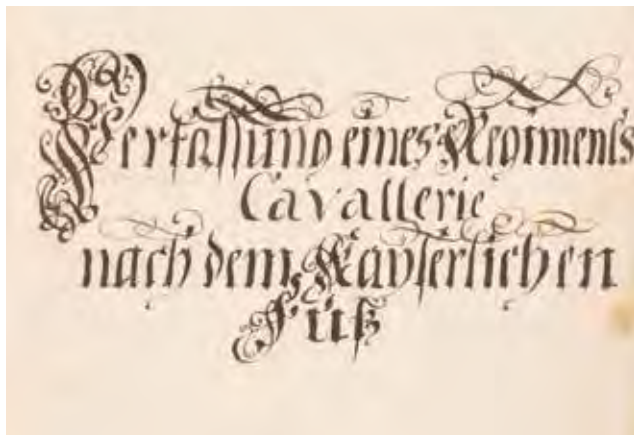 Verfassung eines Regiments
Cavallerie
nach dem Kayserlichen
Fuß